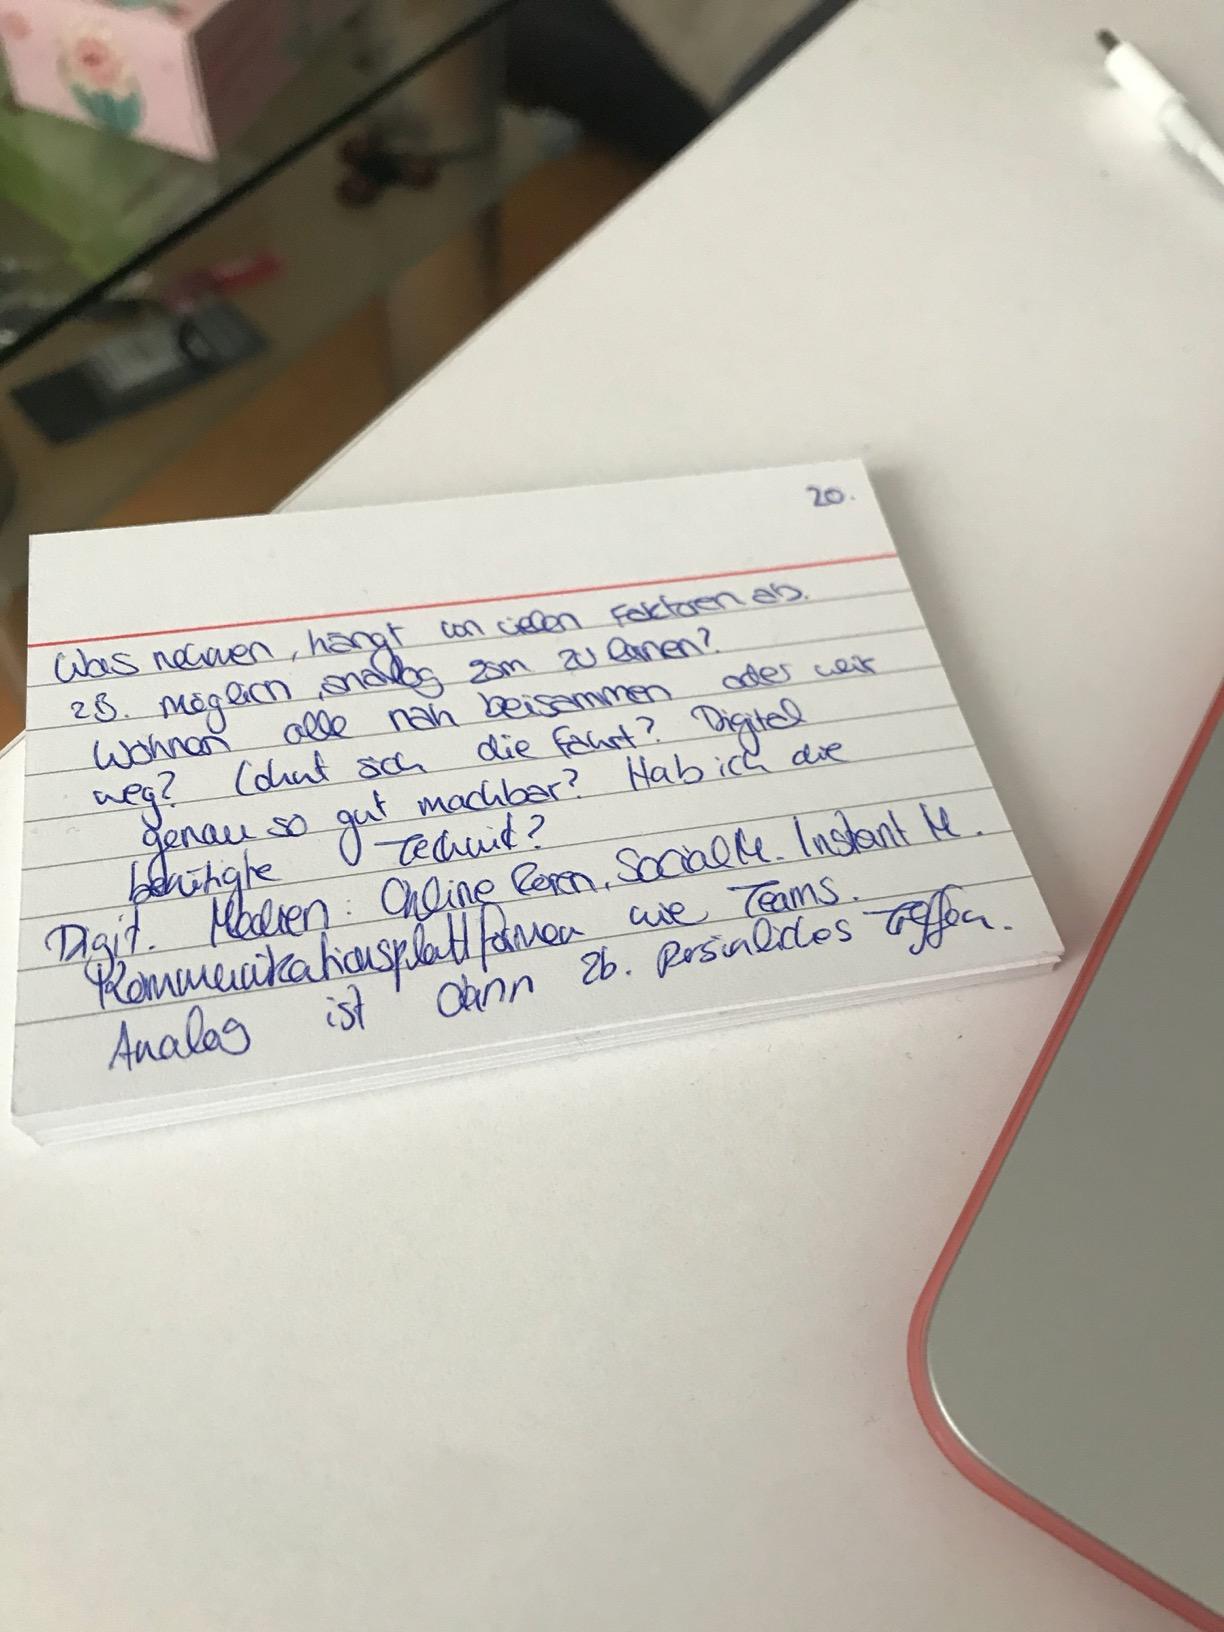 20.
Was nehmen, hängt von vielen Faktoren ab.
zB. möglich, analog zsm zu lernen?
Wohnen alle nah beisammen oder weit
weg? Lohnt sich die Fahrt? Digital
genau so gut machbar? Hab ich die
benötigte Technik?
Digit. Medien: Online lernen, Social M. Instant M.
Kommunikationsplattformen wie Teams.
Analog ist dann zb. persönliches Treffen.